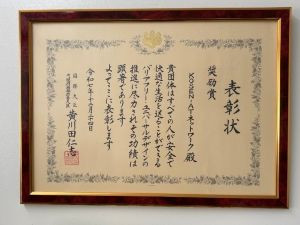 表彰状
奨励賞
KOSEN-ATネットワーク 殿
貴団体はすべての人が安全で
快適な生活を送ることができる
バリアフリー・ユニバーサルデザインの
推進に尽力されその功績は
顕著であります
よってここに表彰します
令和七年十二月二十四日
黄川田仁志